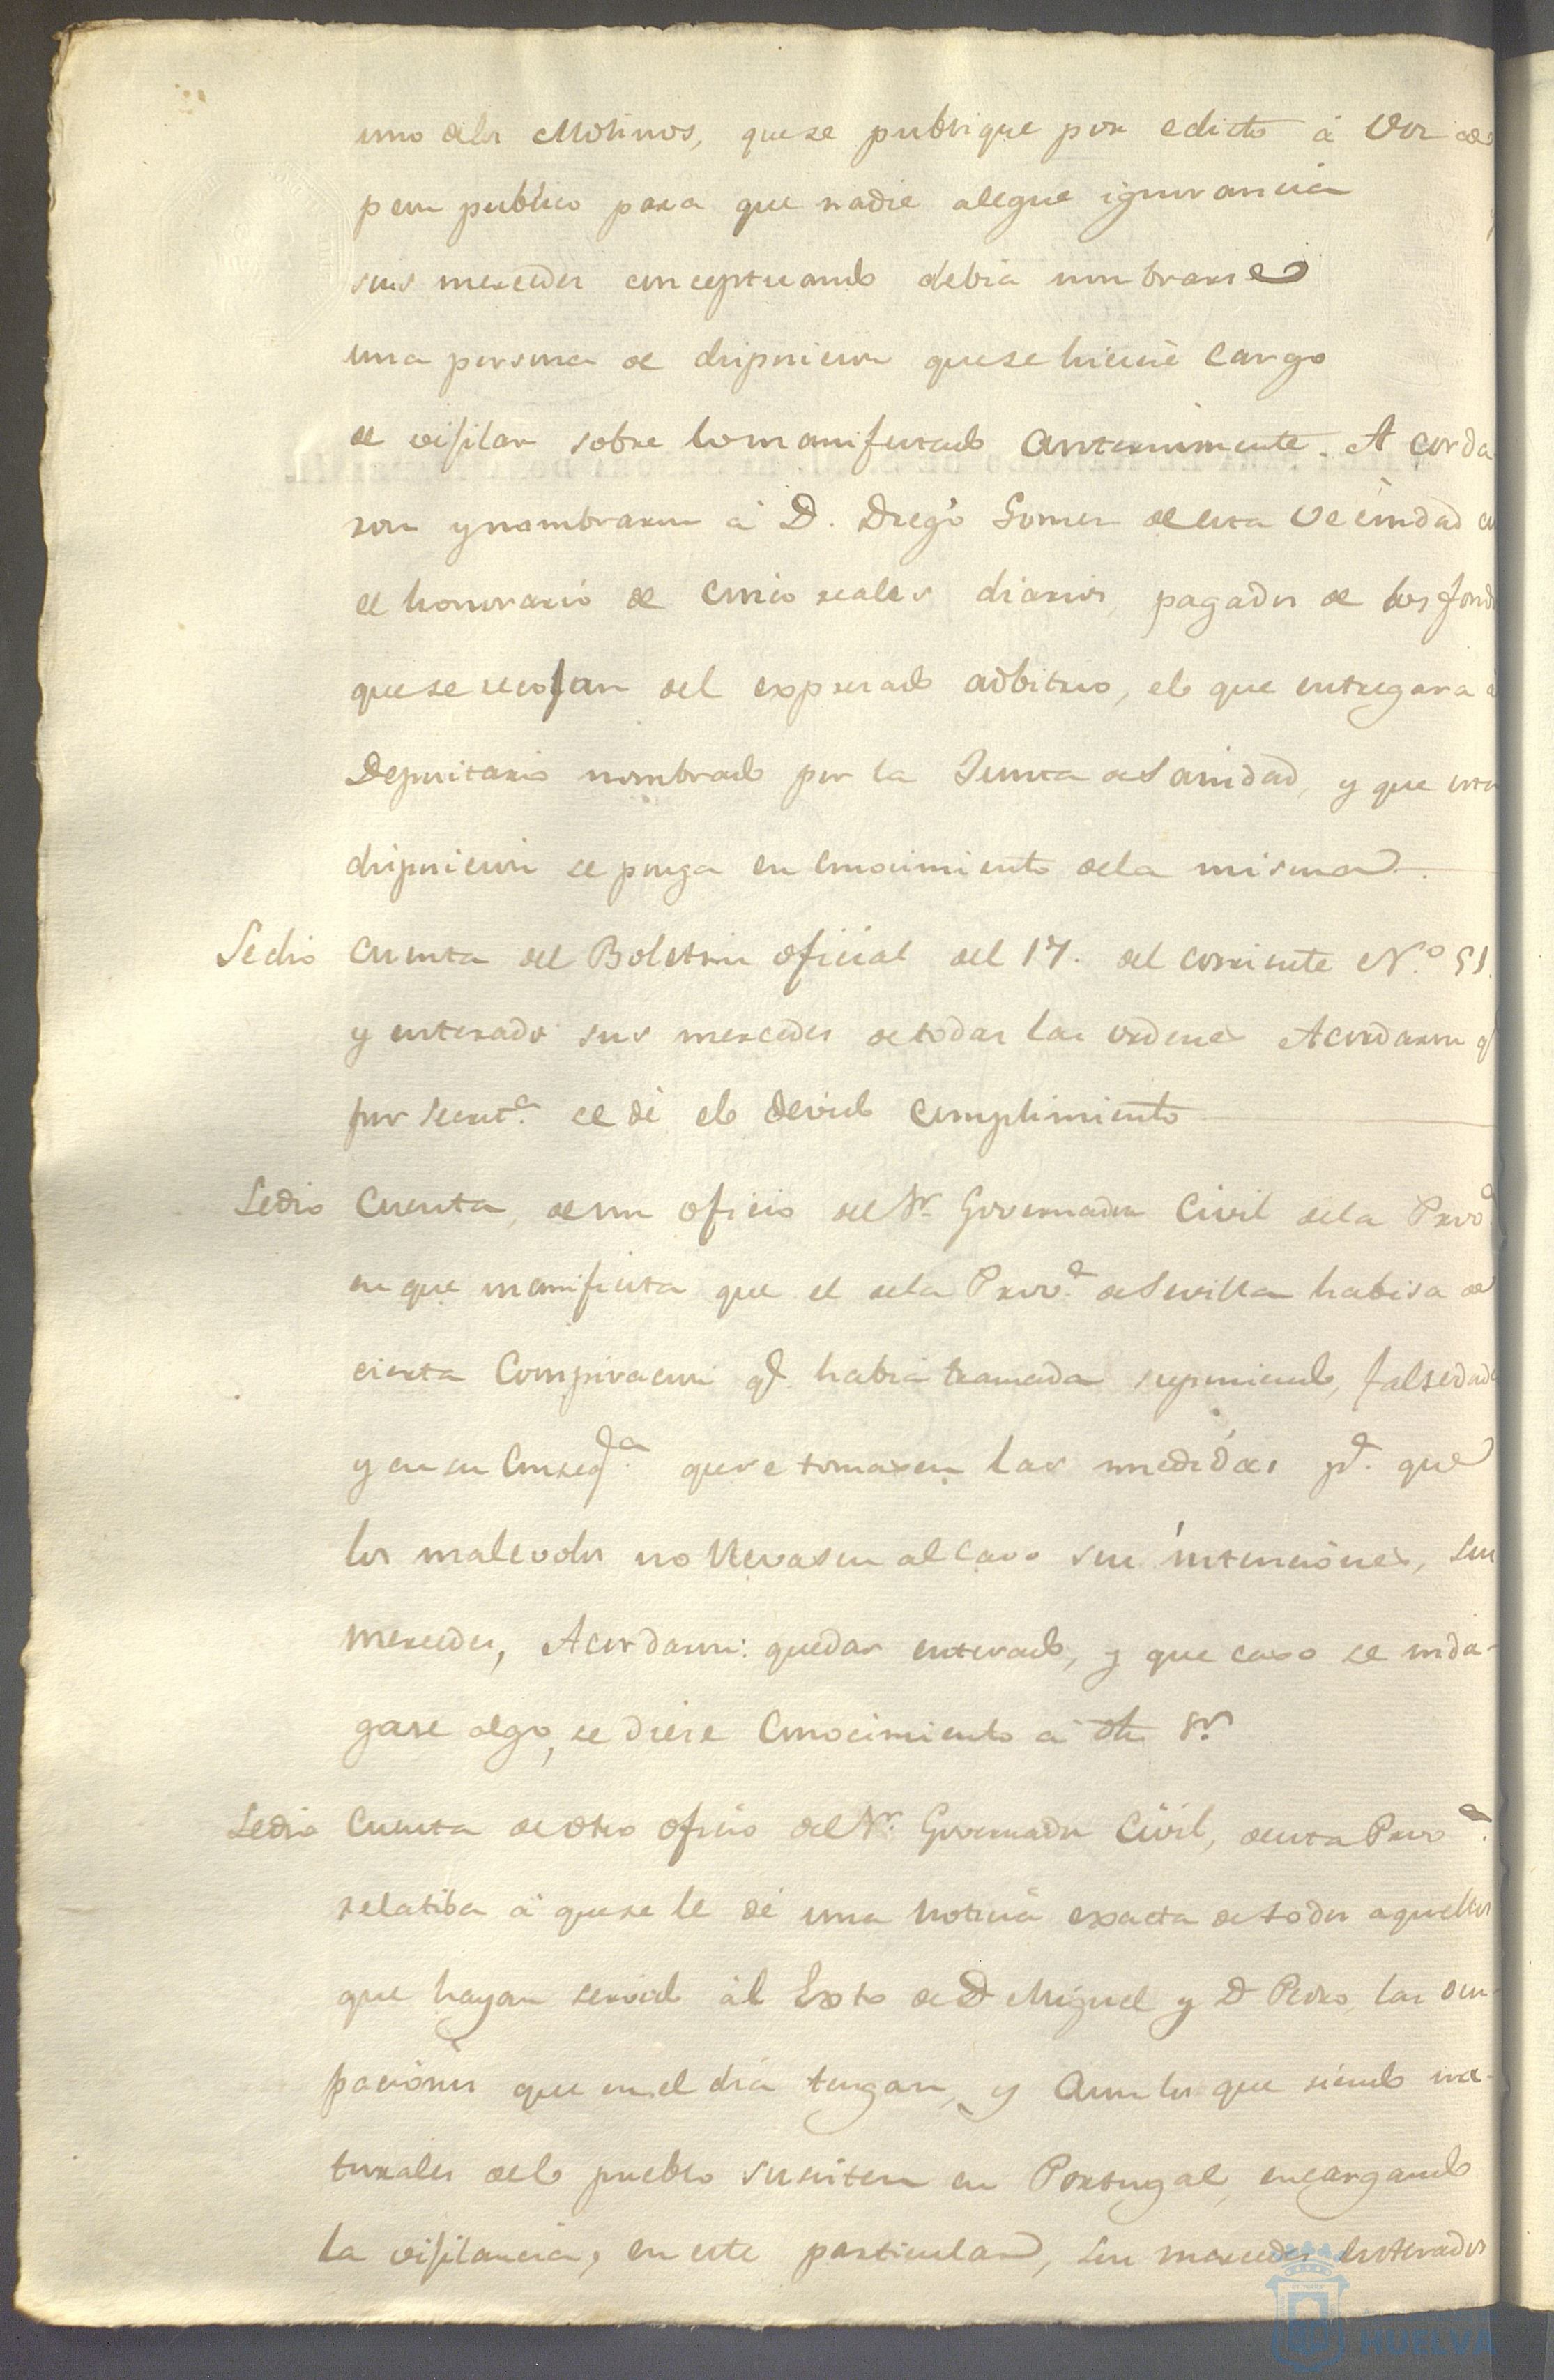 uno delos Molinos, quese publique por edicto á Voz de
peon publico para que nadie alegue ignorancia
sus mercedes conceptuando debia nombrarse
una persona de disposicion quese hiciese cargo
de vijilar sobre lo manifestado anteriormente. Acorda
ron y nombraron á D. Diego Gomez de esta Vecindad
el honorario de cinco reales diarios, pagados de los fond
quese recojan del expresado adbitrio, el que entregara
Depocitario nombrado por la Junta de Sanidad, y que esta
disposicion se ponga en conocimiento dela misma.
Sedio cuenta del Boletin oficial del 17. del corriente N.º 51.
y enterado sus mercedes de todas las ordenes Acordaron q
por secret.ª se dé el devido cumplimiento
Sedio Cuenta, de un oficio del Sr. Governador Civil dela Prov.ª
en que manifiesta que el dela Prov.ª de Sevilla habisa de
cierta Conspiracion q.e habia tramada suponiendo, falsedad
y en su conseq.ª quese tomasen las medidas p.a que
los malevolos no llevasen al cavo sus intenciones, sus
mercedes, Acordaron: quedar enterado, y que caso se inda-
gase algo, se diese Conocimiento á dho Sr.
Sedio Cuenta de otro oficio del Sr. Governador Civil, de esta Prov.ª
relatiba á quese le dé una noticia exacta de todos aquellos
que hayan servido ál Exto de D Miguel y D Pedro, las ocu-
paciones que en el dia tengan, y aun los que siendo na-
turales del pueblo sirviten en Portugal, encargando
la vijilancia, en este particular, sus mercedes enterados
HUELVA